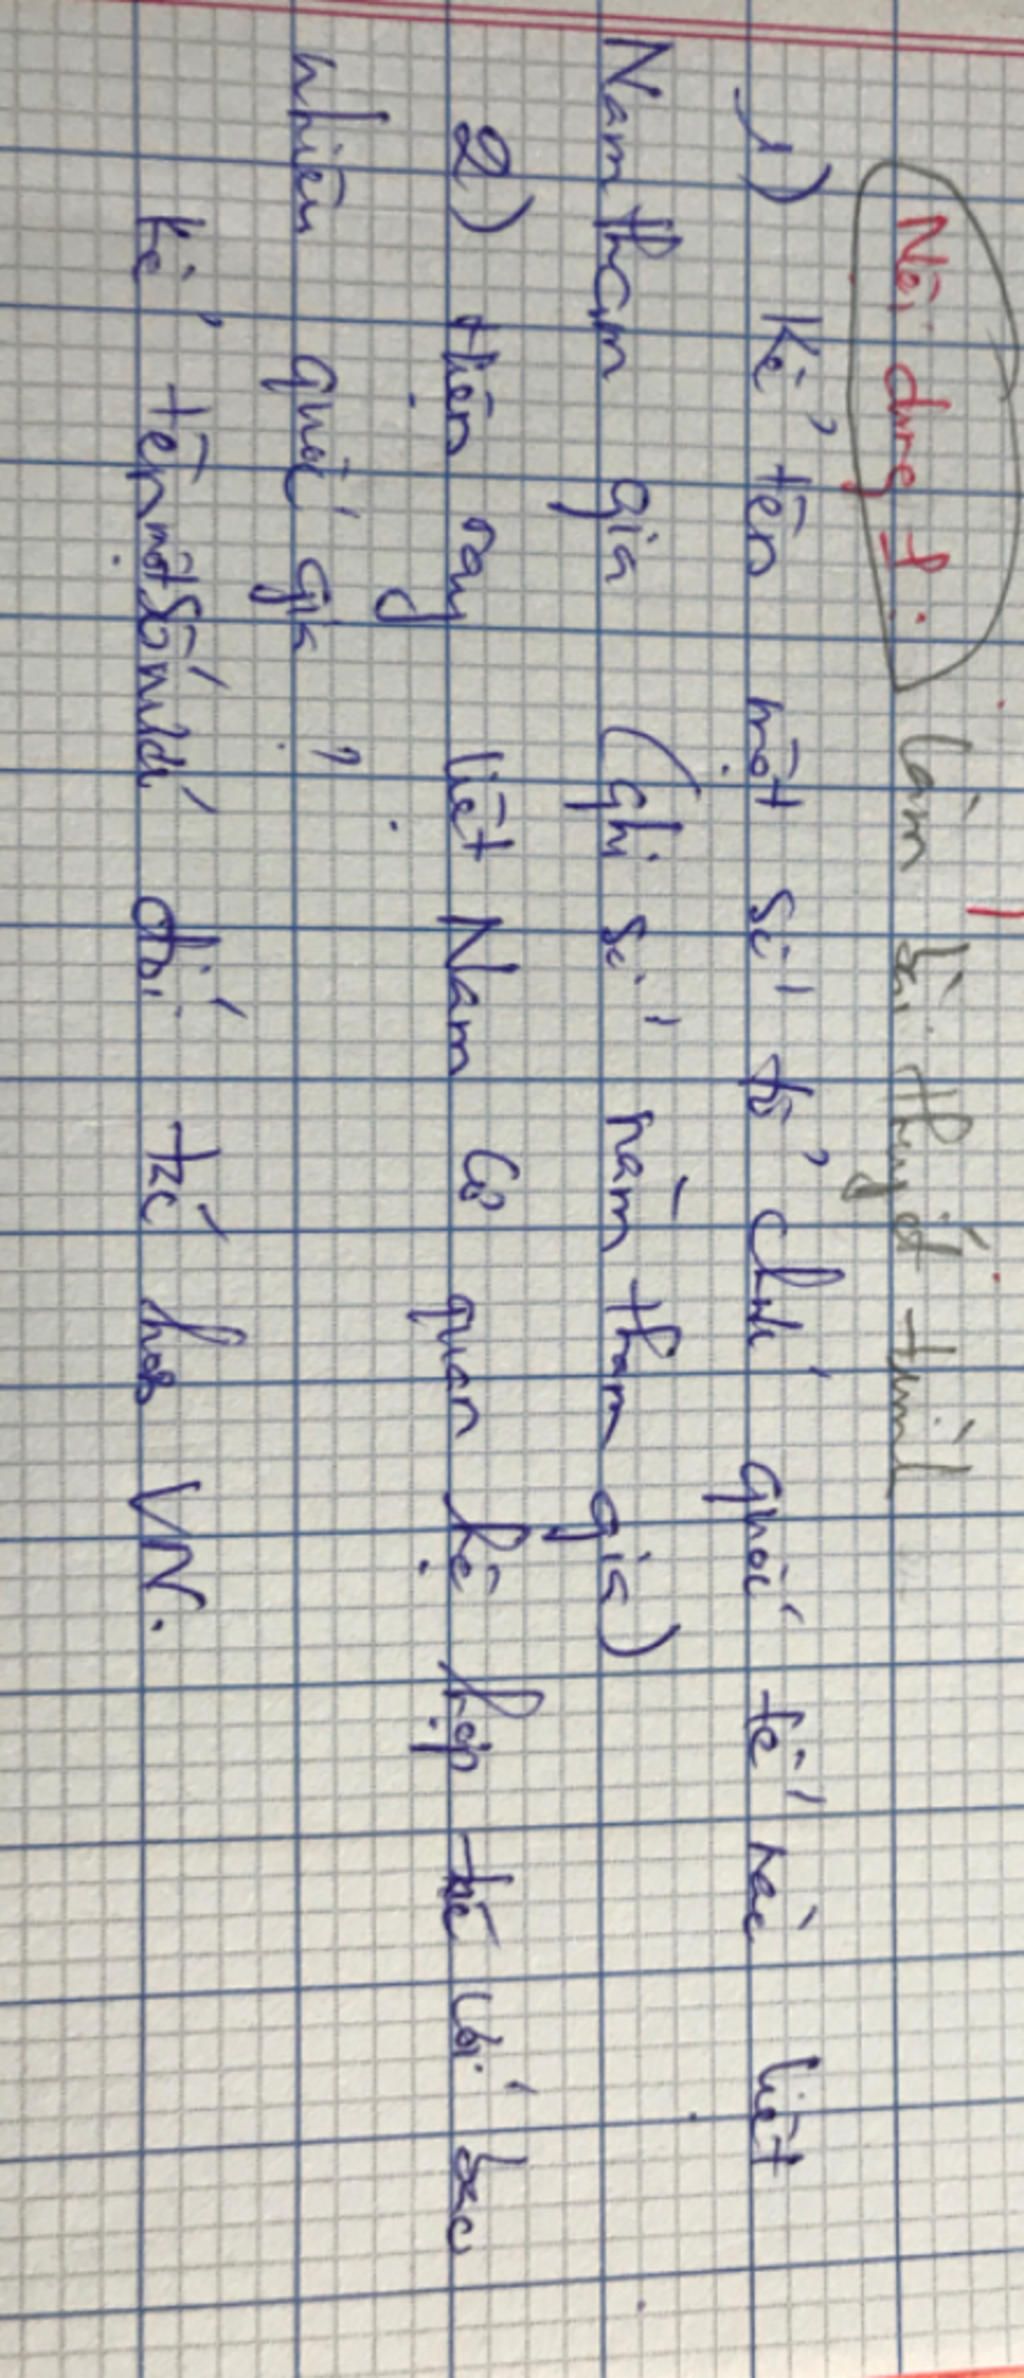 Nội dung 1: Làm bài thuyết trình
1) Kể tên một số tổ chức quốc tế mà Việt
Nam tham gia (ghi số năm tham gia)
2) Hiện nay Việt Nam có quan hệ hợp tác với bao
nhiêu quốc gia?
Kể tên một số nước đối tác của VN.